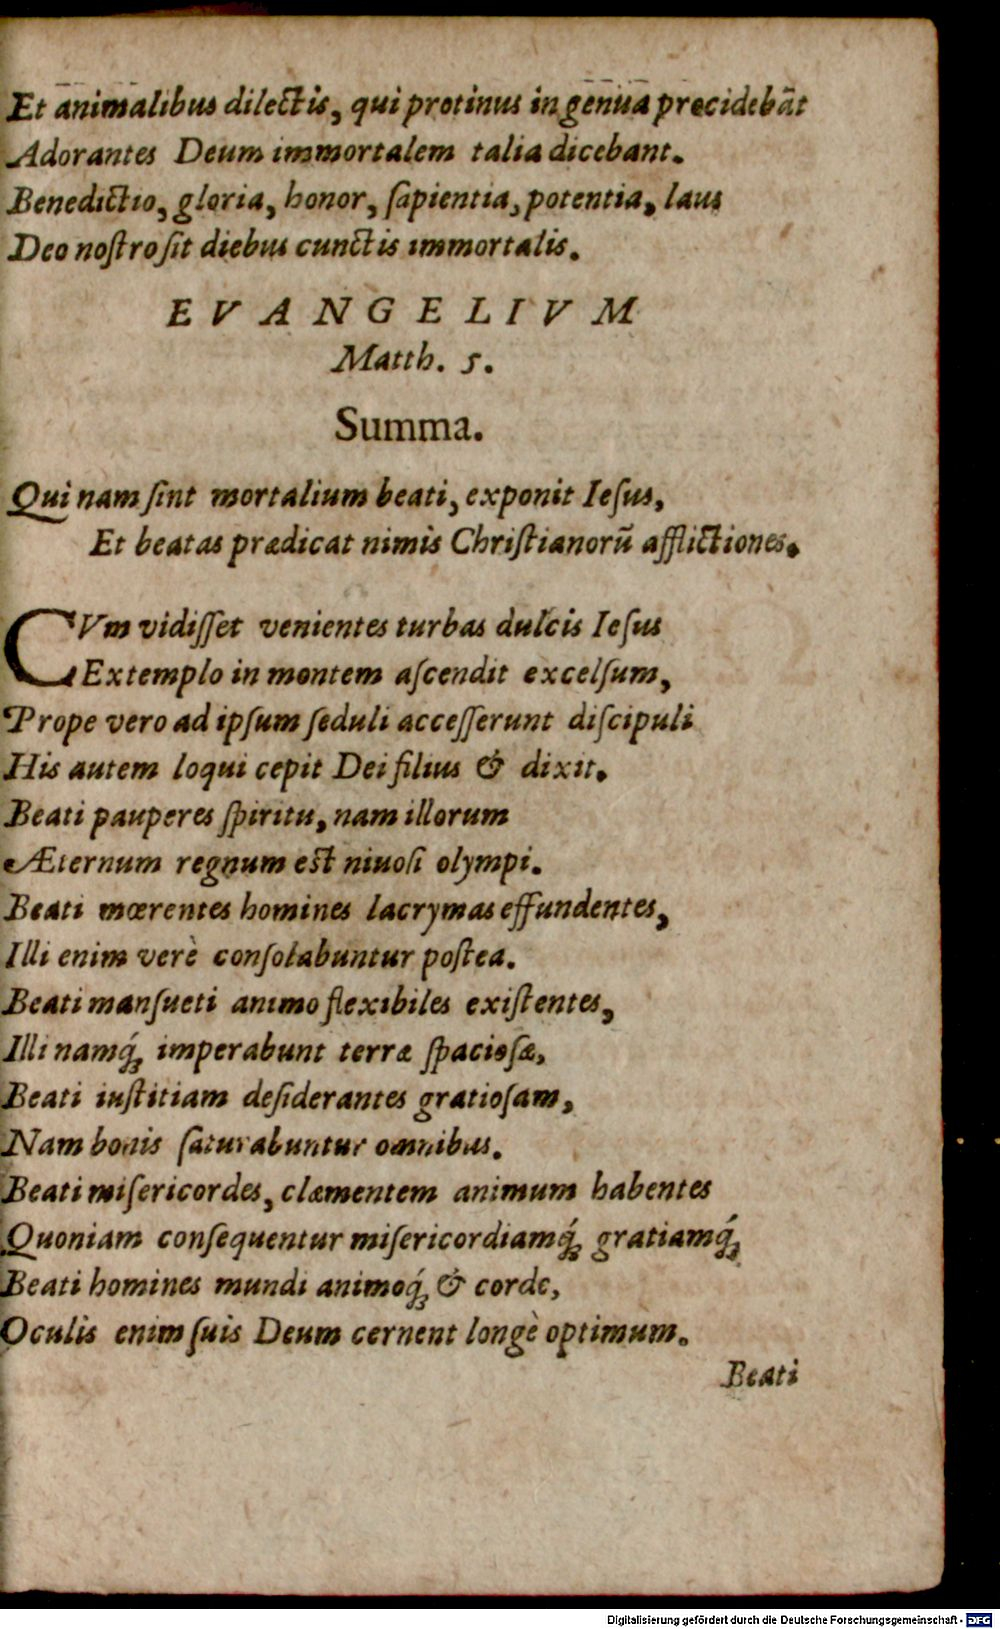 Et animalibus dilectis, qui protinus in genua procidebāt
Adorantes Deum immortalem talia dicebant.
Benedictio, gloria, honor, ſapientia, potentia, laus
Deo noſtro ſit diebus cunctis immortalis.
EVANGELIVM
Matth. 5.
Summa.
Qui nam ſint mortalium beati, exponit Ieſus,
Et beatas prædicat nimis Chriſtianorū afflictiones.
CVm vidiſſet venientes turbas dulcis Ieſus
Extemplo in montem aſcendit excelſum,
Prope vero ad ipſum ſeduli acceſſerunt diſcipuli
His autem loqui cepit Dei filius & dixit.
Beati pauperes ſpiritu, nam illorum
Æternum regnum est niuoſi olympi.
Beati mœrentes homines lacrymas effundentes,
Illi enim verè conſolabuntur poſtea.
Beati manſueti animo flexibiles exiſtentes,
Illi namq́ꝫ imperabunt terræ ſpacioſæ,
Beati iuſtitiam deſiderantes gratioſam,
Nam bonis ſaturabuntur omnibus.
Beati miſericordes, clæmentem animum habentes
Quoniam conſequentur miſericordiamq́ꝫ gratiamq́ꝫ
Beati homines mundi animoq́ꝫ & corde,
Oculis enim ſuis Deum cernent longè optimum.
Beati
Digitalisierung gefördert durch die Deutsche Forschungsgemeinschaft - DFG